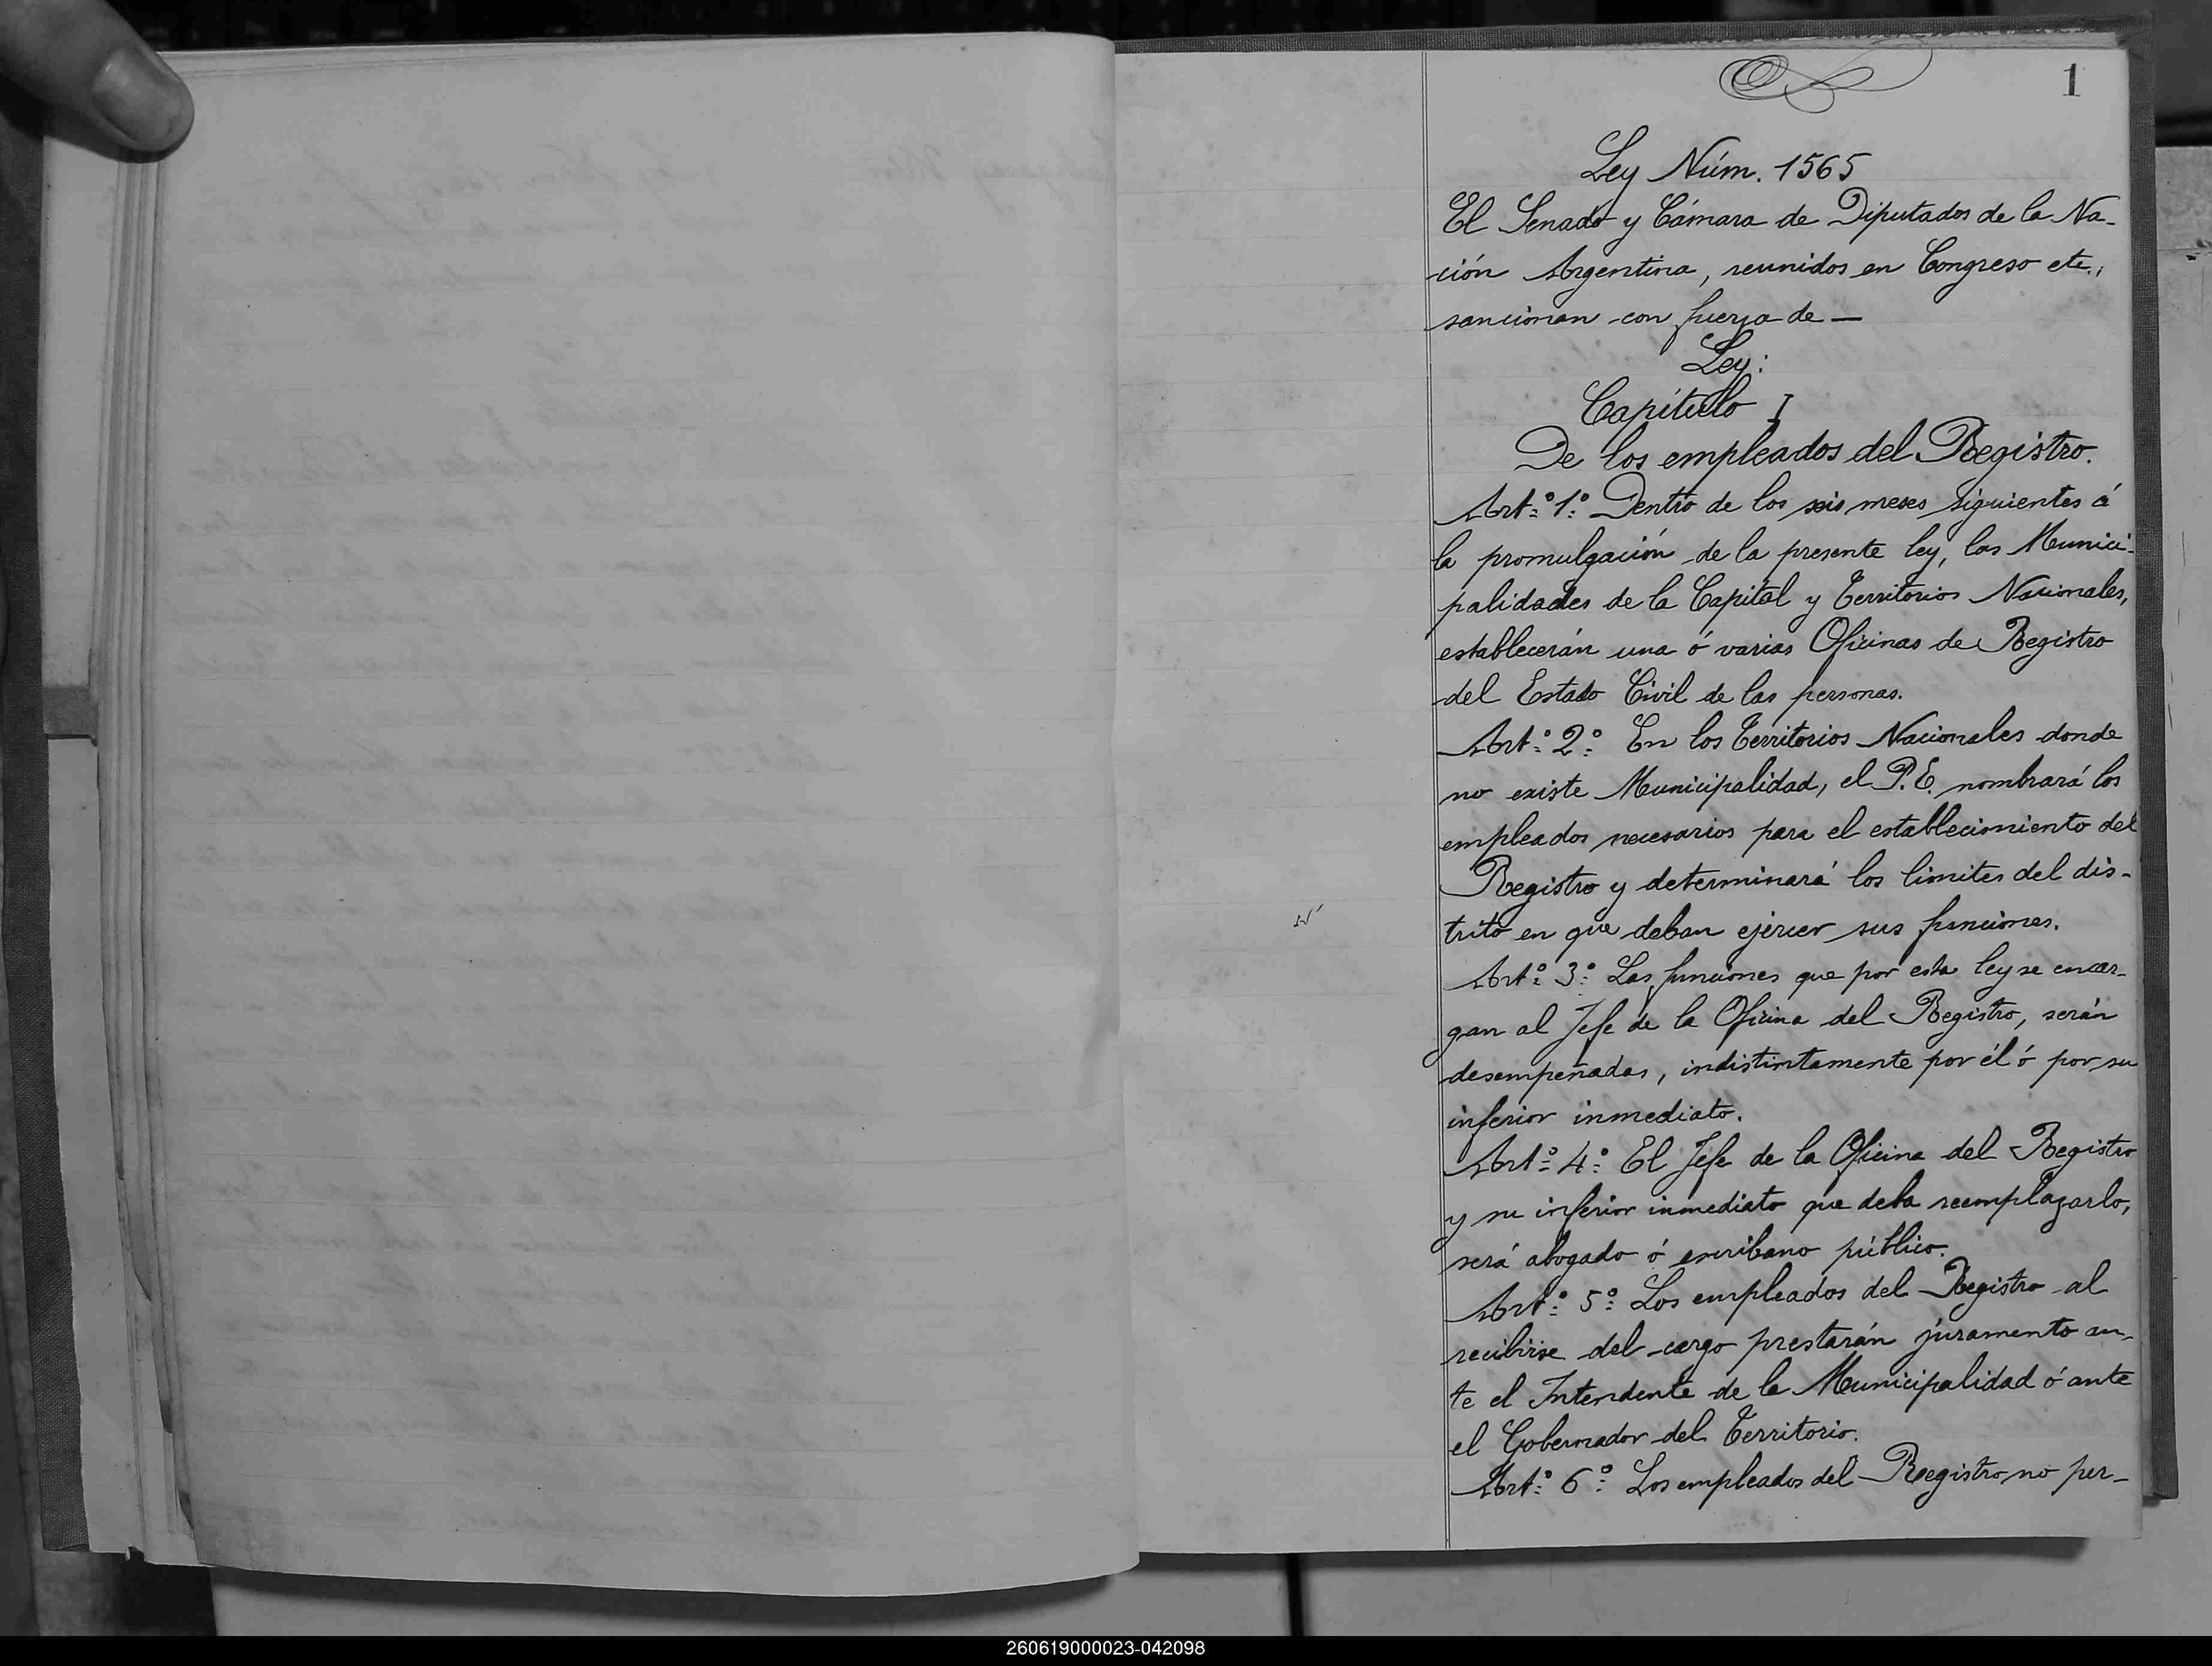 1
Ley Núm. 1565
El Senado y Cámara de Diputados de la Na-
ción Argentina, reunidos en Congreso etc.,
sancionan con fuerza de —
Ley:
Capítulo I
De los empleados del Registro.
Art.º 1.º Dentro de los seis meses siguientes á
la promulgación de la presente ley, las Munici-
palidades de la Capital y Territorios Nacionales,
establecerán una ó varias Oficinas de Registro
del Estado Civil de las personas.
Art.º 2.º En los Territorios Nacionales donde
no existe Municipalidad, el P.E. nombrará los
empleados necesarios para el establecimiento del
Registro y determinará los limites del dis-
trito en que deban ejercer sus funciones.
Art.º 3.º Las funciones que por esta ley se encar-
gan al Jefe de la Oficina del Registro, serán
desempeñadas, indistintamente por él ó por su
inferior inmediato.
Art.º 4.º El Jefe de la Oficina del Registro
y su inferior inmediato que deba reemplazarlo,
será abogado ó escribano público.
Art.º 5.º Los empleados del Registro al
recibirse del cargo prestarán juramento an-
te el Intendente de la Municipalidad ó ante
el Gobernador del Territorio.
Art.º 6.º Los empleados del Registro no per-
260619000023-042098